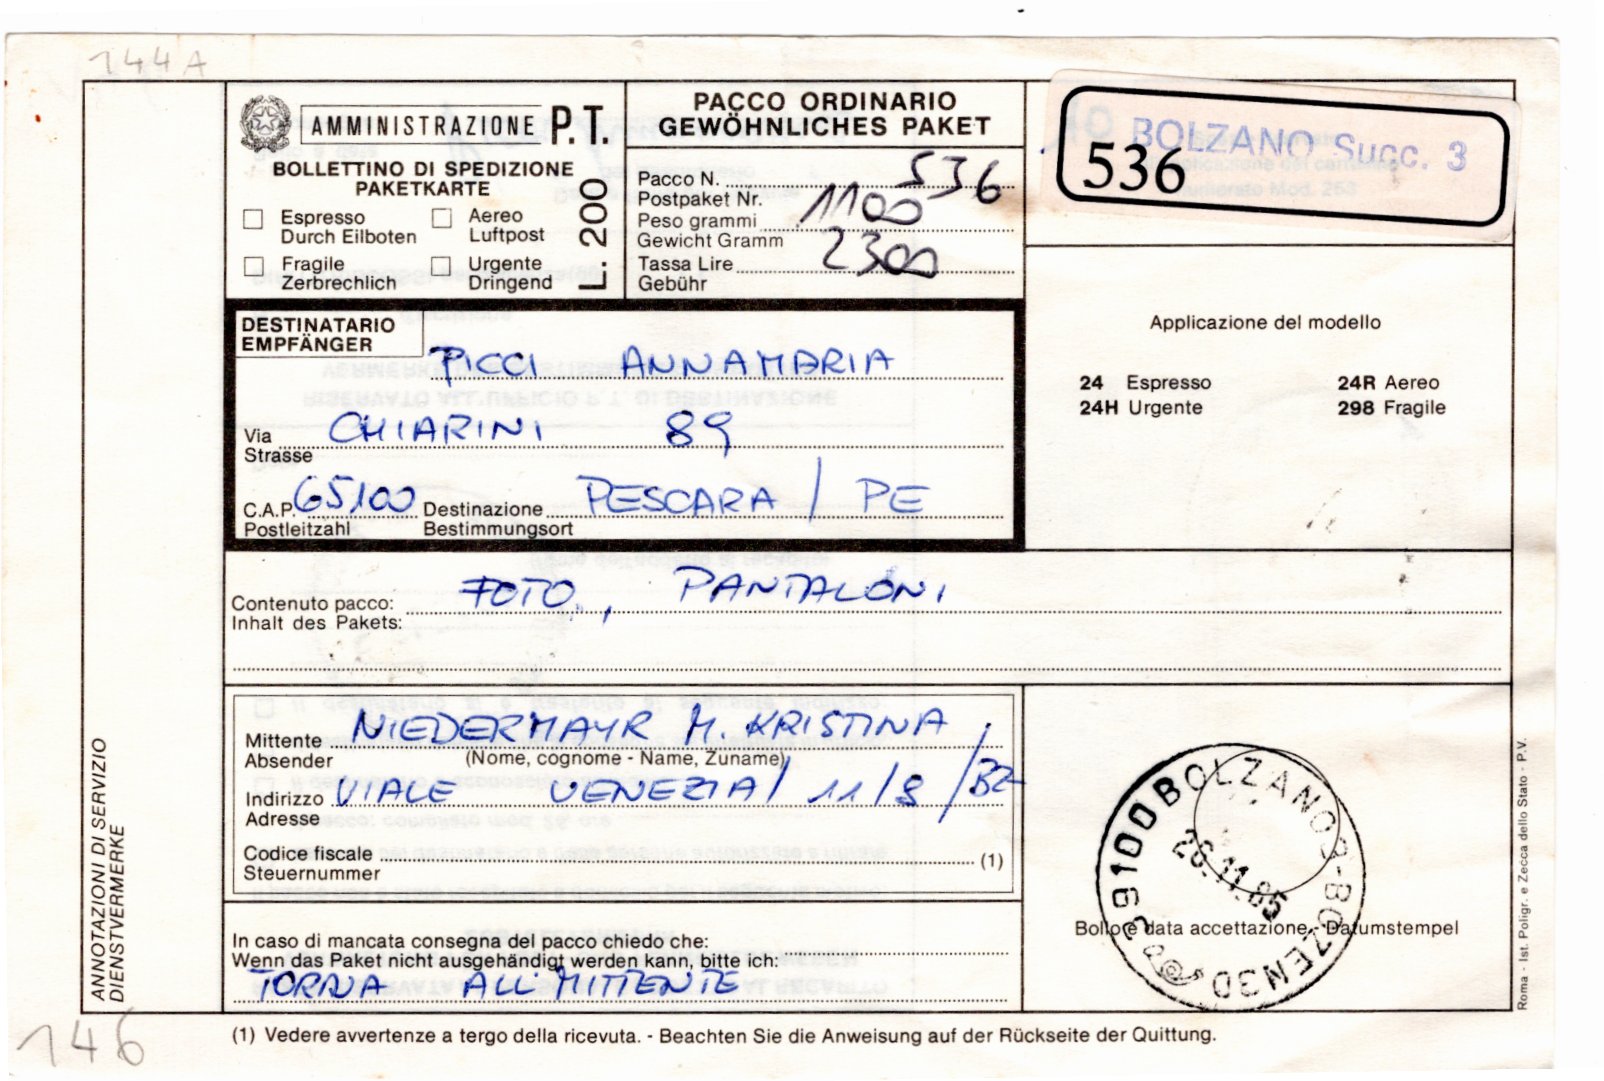 144A
AMMINISTRAZIONE P.T.
BOLLETTINO DI SPEDIZIONE
PAKETKARTE
Espresso
Durch Eilboten
Aereo
Luftpost
Fragile
Zerbrechlich
Urgente
Dringend
L. 200
PACCO ORDINARIO
GEWÖHNLICHES PAKET
Pacco N. 536
Postpaket Nr.
Peso grammi 1100
Gewicht Gramm
Tassa Lire 2300
Gebühr
BOLZANO Succ. 3
536
Applicazione del modello
24 Espresso
24R Aereo
24H Urgente
298 Fragile
DESTINATARIO
EMPFÄNGER
PICCI ANNAMARIA
Via CHIARINI 89
Strasse
C.A.P. 65100 Destinazione PESCARA / PE
Postleitzahl Bestimmungsort
Contenuto pacco: FOTO, PANTALONI
Inhalt des Pakets:
Mittente NIEDERMAYR M. KRISTINA
Absender (Nome, cognome - Name, Zuname)
Indirizzo VIALE VENEZIA / 11/8 /BZ
Adresse
Codice fiscale (1)
Steuernummer
In caso di mancata consegna del pacco chiedo che:
Wenn das Paket nicht ausgehändigt werden kann, bitte ich:
TORNA ALL MITTENTE
39100 BOLZANO 3 - BOZEN 3
26.11.85
Bollo e data accettazione - Datumstempel
ANNOTAZIONI DI SERVIZIO
DIENSTVERMERKE
Roma - Ist. Poligr. e Zecca dello Stato - P.V.
(1) Vedere avvertenze a tergo della ricevuta. - Beachten Sie die Anweisung auf der Rückseite der Quittung.
146